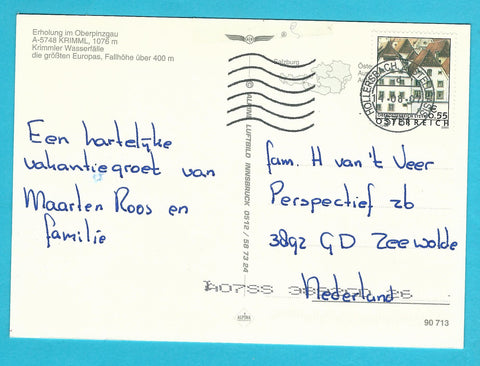 Erholung im Oberpinzgau
A-5748 KRIMML, 1076 m
Krimmler Wasserfälle
die größten Europas, Fallhöhe über 400 m
Een hartelijke
vakantiegroet van
Maarten Roos en
familie
© ALPINE LUFTBILD INNSBRUCK 0512 / 58 73 24
Salzburg
HOLLERSBACH
0.55
ÖSTERREICH
fam. H van 't Veer
Perspectief 26
3892 GD Zeewolde
Nederland
ALPINA
90 713